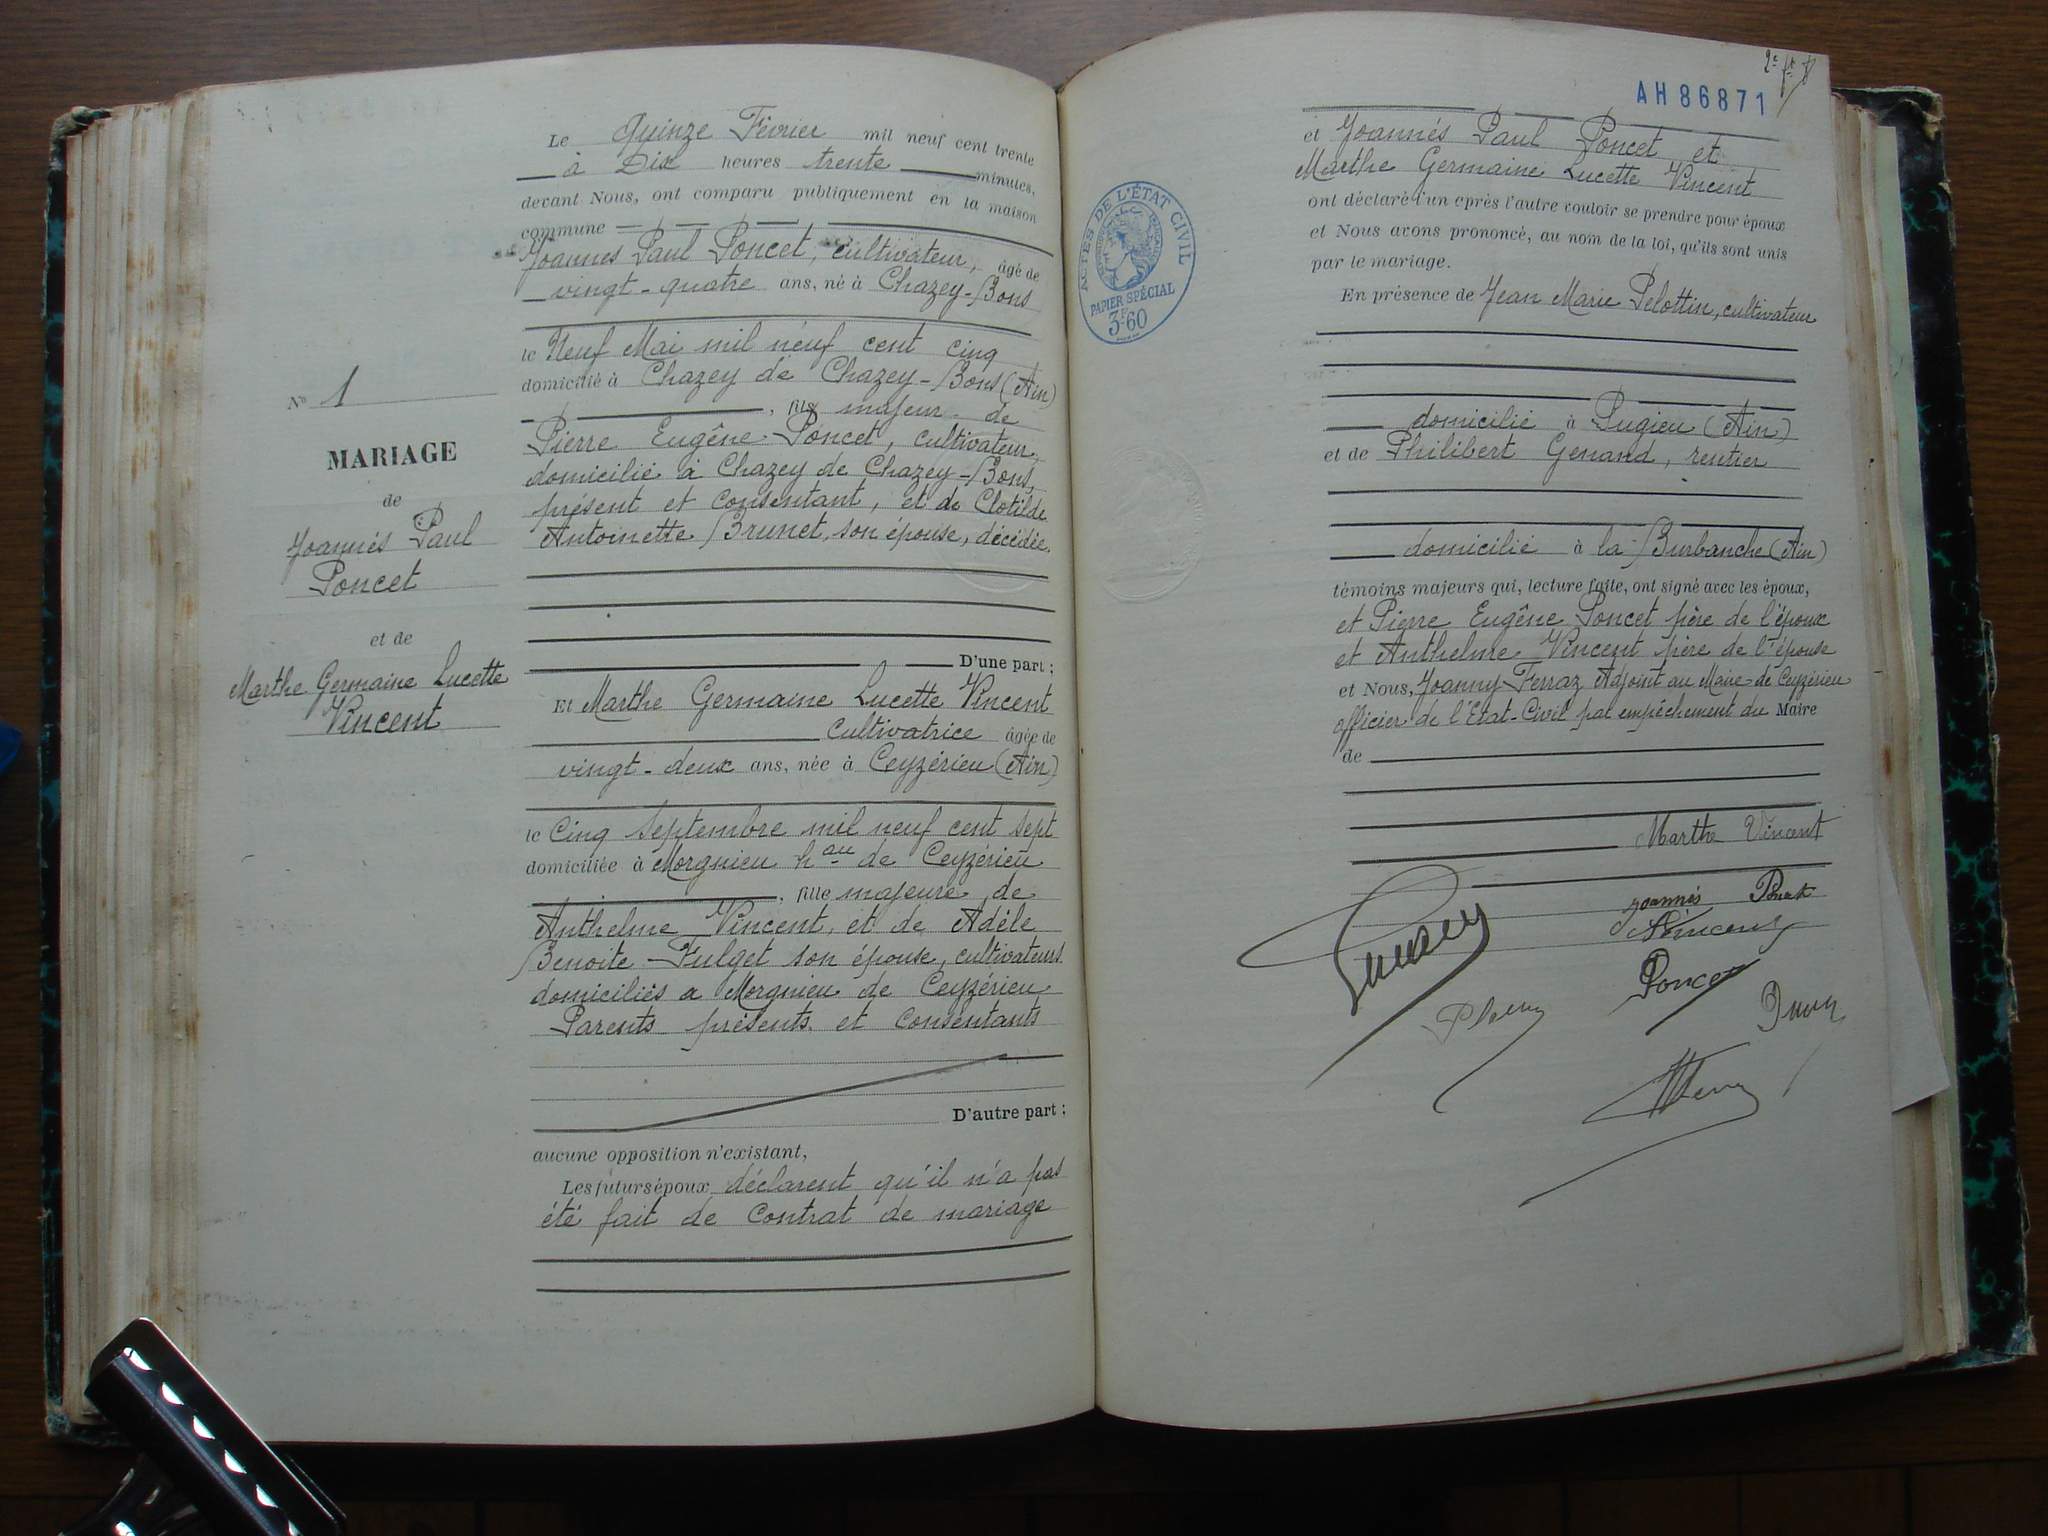 N° 1
MARIAGE
de
Joannés Paul
Poncet
et de
Marthe Germaine Lucette
Vincent
Le Quinze Février mil neuf cent trente
à Dix heures trente minutes,
devant Nous, ont comparu publiquement en la maison
commune
Joannes Paul Poncet, cultivateur, âgé de
vingt-quatre ans, né à Chazey-Bons
le Neuf Mai mil neuf cent cinq
domicilié à Chazey de Chazey-Bons (Ain)
, fils majeur de
Pierre Eugêne Poncet, cultivateur,
domicilié à Chazey de Chazey-Bons,
présent et consentant, et de Clotilde
Antoinette Brunet, son épouse, décédée.
D'une part ;
Et Marthe Germaine Lucette Vincent
Cultivatrice âgée de
vingt-deux ans, née à Ceyzérieu (Ain)
le Cinq Septembre mil neuf cent sept
domiciliée à Morgnieu hau de Ceyzérieu
, fille majeure de
Anthelme Vincent, et de Adèle
Benoite Fulget son épouse, cultivateurs
domiciliés a Morgnieu de Ceyzérieu
Parents présents et consentants
D'autre part ;
aucune opposition n'existant,
Les futurs époux déclarent qu'il n'a pas
été fait de contrat de mariage
2e
AH86871
et Joannés Paul Poncet et
Marthe Germaine Lucette Vincent
ont déclaré l'un après l'autre vouloir se prendre pour époux
et Nous avons prononcé, au nom de la loi, qu'ils sont unis
par le mariage.
ACTES DE L'ÉTAT CIVIL
PAPIER SPÉCIAL
3F60
En présence de Jean Marie Pelottin, cultivateur
domicilié à Pugieu (Ain)
et de Philibert Genand, rentier
domicilié à la Burbanche (Ain)
témoins majeurs qui, lecture faite, ont signé avec les époux,
et Pierre Eugêne Poncet père de l'époux
et Anthelme Vincent père de l'épouse
et Nous, Joanny Ferraz Adjoint au Maire de Ceyzérieu
officier de l'Etat-Civil par empêchement du Maire
de
Marthe Vincent
Joannés Poncet
Vincent
Poncet